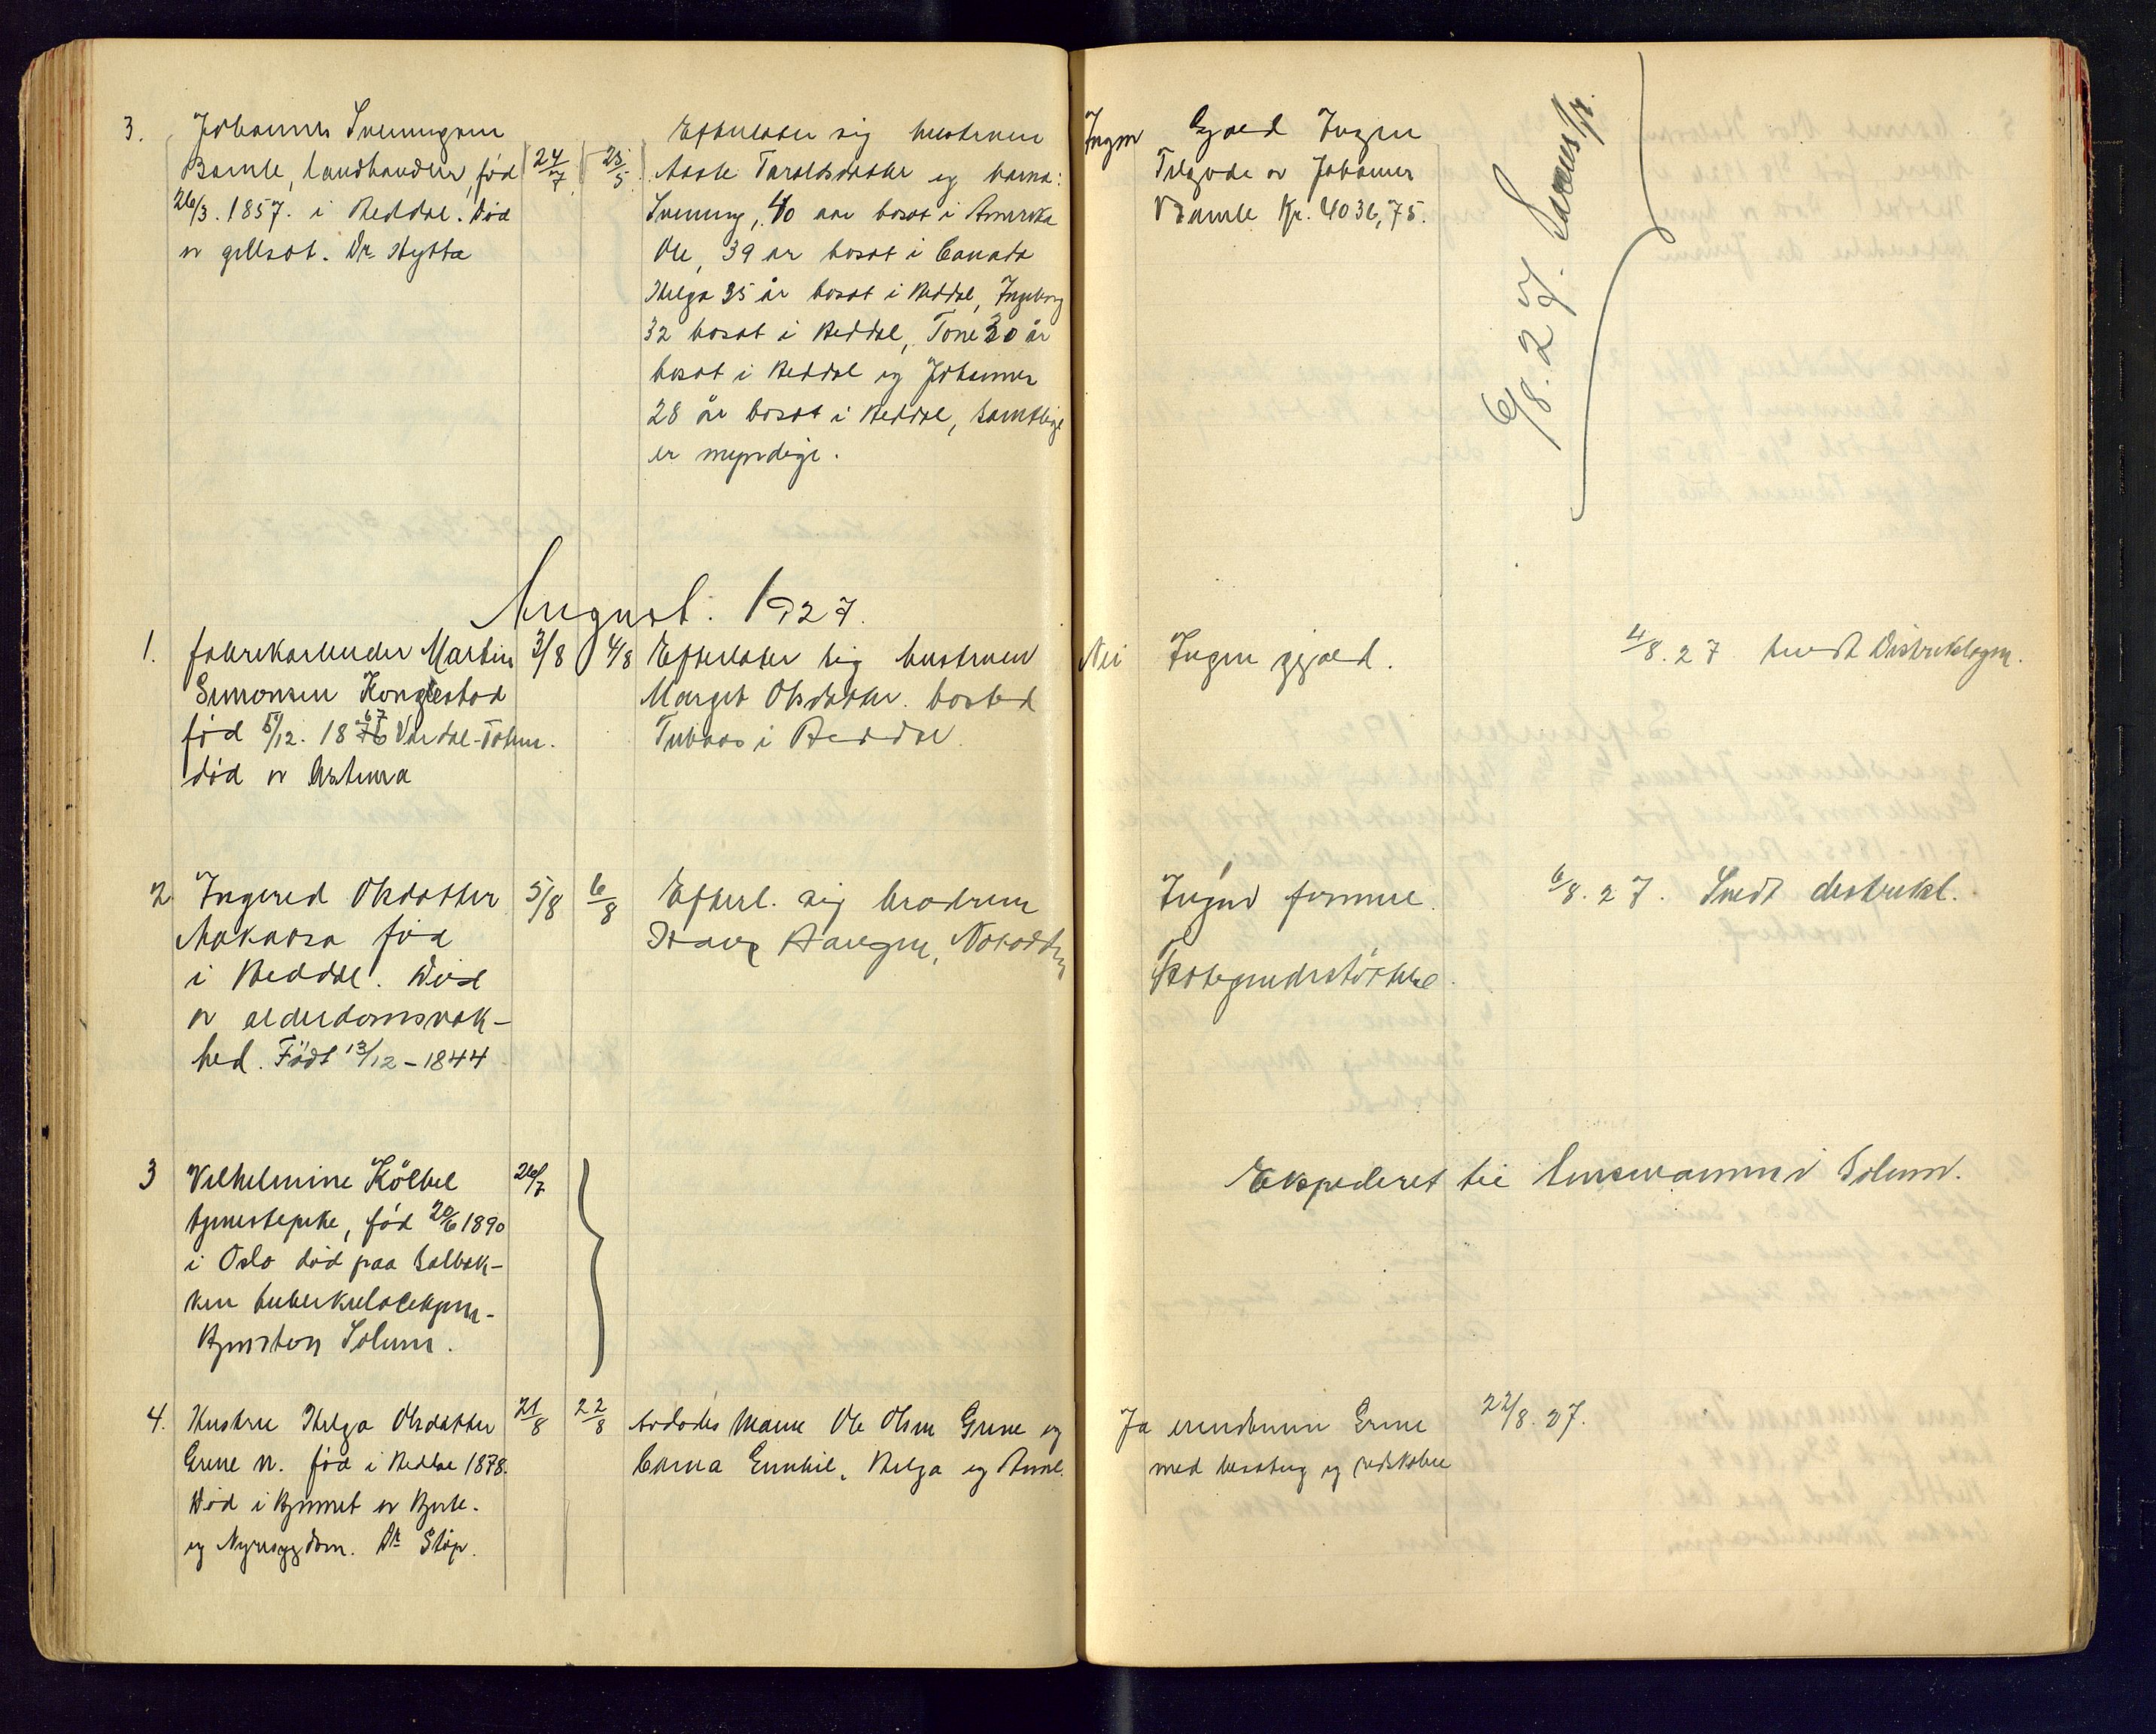 3. Johannes Sveinungsen
Bamle, landhandler, født
26/3. 1857. i Heddal. Død
av gulsot. Dr. Hytta
24/7
25/5
Efterlater sig hustruen
Aaste Taraldsdatter og barna:
Sveinung, 40 aar bosat i Amerika
Ole, 39 ar bosat i Canada
Helga 35 år bosat i Heddal, Ingeborg
32 bosat i Heddal, Tone 30 år
bosat i Heddal og Johannes
28 år bosat i Heddal, samtlige
er myndige.
Ingen
Gjæld Ingen
Tilgode av Johannes
Bamle Kr. 4036,75.
6/8. 27.
August. 1927.
1. fabrikarbeider Martin
Simonsen Konglestad
fød 5/12. 1876 67 Vardal-Toten.
død av Astma
3/8
4/8
Efterlater sig hustruen
Margit Olsdatter. bosted
i Heddal
Nei
Ingen gjæld.
4/8. 27 sendt Distriktslægen.
2 Ingerid Olsdatter
fød
i Heddal. Død
av alderdomsvak-
hed. Født 13/12-1844
5/8
6/8
Efterl. sig broderen
Haugen, Notodden
Ingen formue.
6/8. 27. Sendt distrikt.
3 Vilhelmine Kölbel
tjenestepike, fød 20/6 1890
i Oslo død paa Solbak-
ken tuberkulosehjem-
Hjemsten Solum.
26/7
Ekspederet til lensmannen i Solum.
4. Hustru Helga Olsdatter
Grene n. fød i Heddal 1878.
Død i hjemmet av hjerte-
og Nyresygdom. Dr Støp.
21/8
22/8
Avdødes Mann Ole Olsen Grene og
barna Gunhil, Helga og Anne.
Ja eiendommen Grene
med besetning og redskaber
22/8. 27.